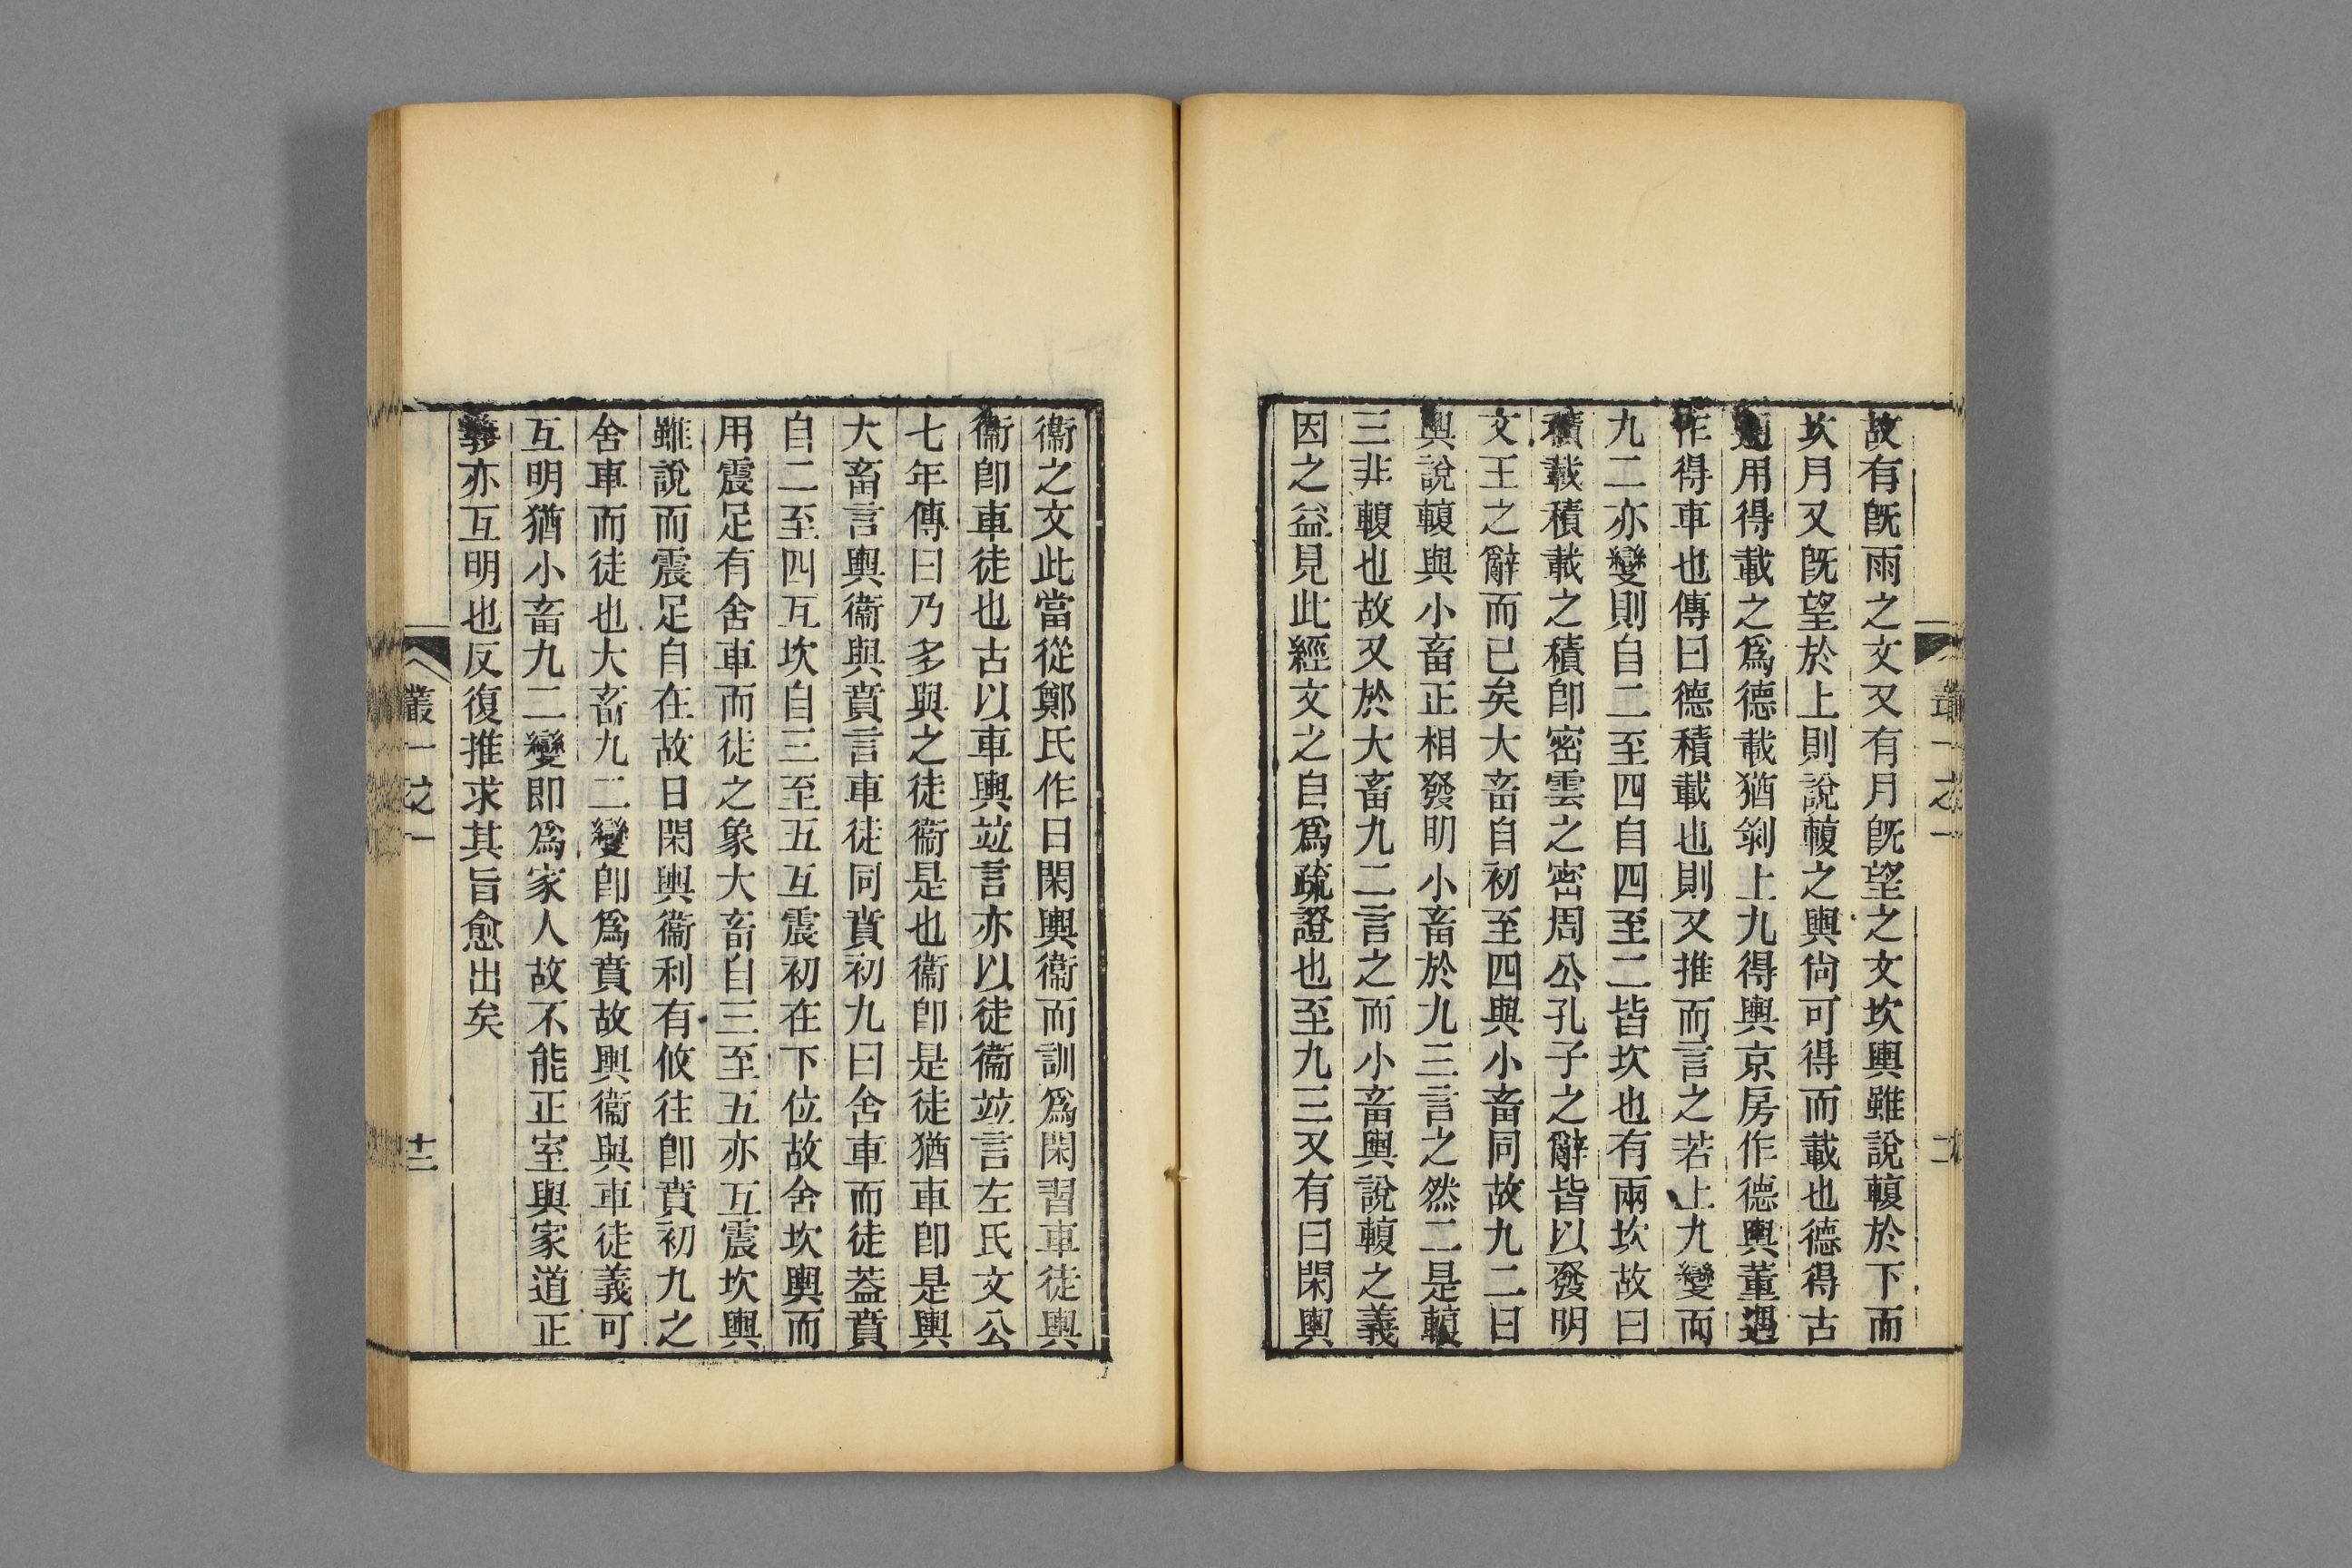 故有旣雨之文又有月旣望之文坎輿雖說輹於下而
坎月又旣望於上則說輹之輿尙可得而載也德得古
通用得載之爲德載猶剝上九得輿京房作德輿董遇
作得車也傳曰德積載也則又推而言之若上九變而
九二亦變則自二至四自四至二皆坎也有兩坎故曰
積載積載之積卽密雲之密周公孔子之辭皆以發明
文王之辭而已矣大畜自初至四與小畜同故九二曰
輿說輹與小畜正相發明小畜於九三言之然二是輹
三非輹也故又於大畜九二言之而小畜輿說輹之義
因之益見此經文之自爲疏證也至九三又有曰閑輿
叢一之一
衞之文此當從鄭氏作日閑輿衞而訓爲閑習車徒輿
衞卽車徒也古以車輿竝言亦以徒衞竝言左氏文公
七年傳曰乃多與之徒衞是也衞卽是徒猶車卽是輿
大畜言輿衞與賁言車徒同賁初九曰舍車而徒蓋賁
自二至四互坎自三至五互震初在下位故舍坎輿而
用震足有舍車而徒之象大畜自三至五亦互震坎輿
雖說而震足自在故日閑輿衞利有攸往卽賁初九之
舍車而徒也大畜九二變卽爲賁故輿衞與車徒義可
互明猶小畜九二變卽爲家人故不能正室與家道正
義亦互明也反復推求其旨愈出矣
叢一之一
十二